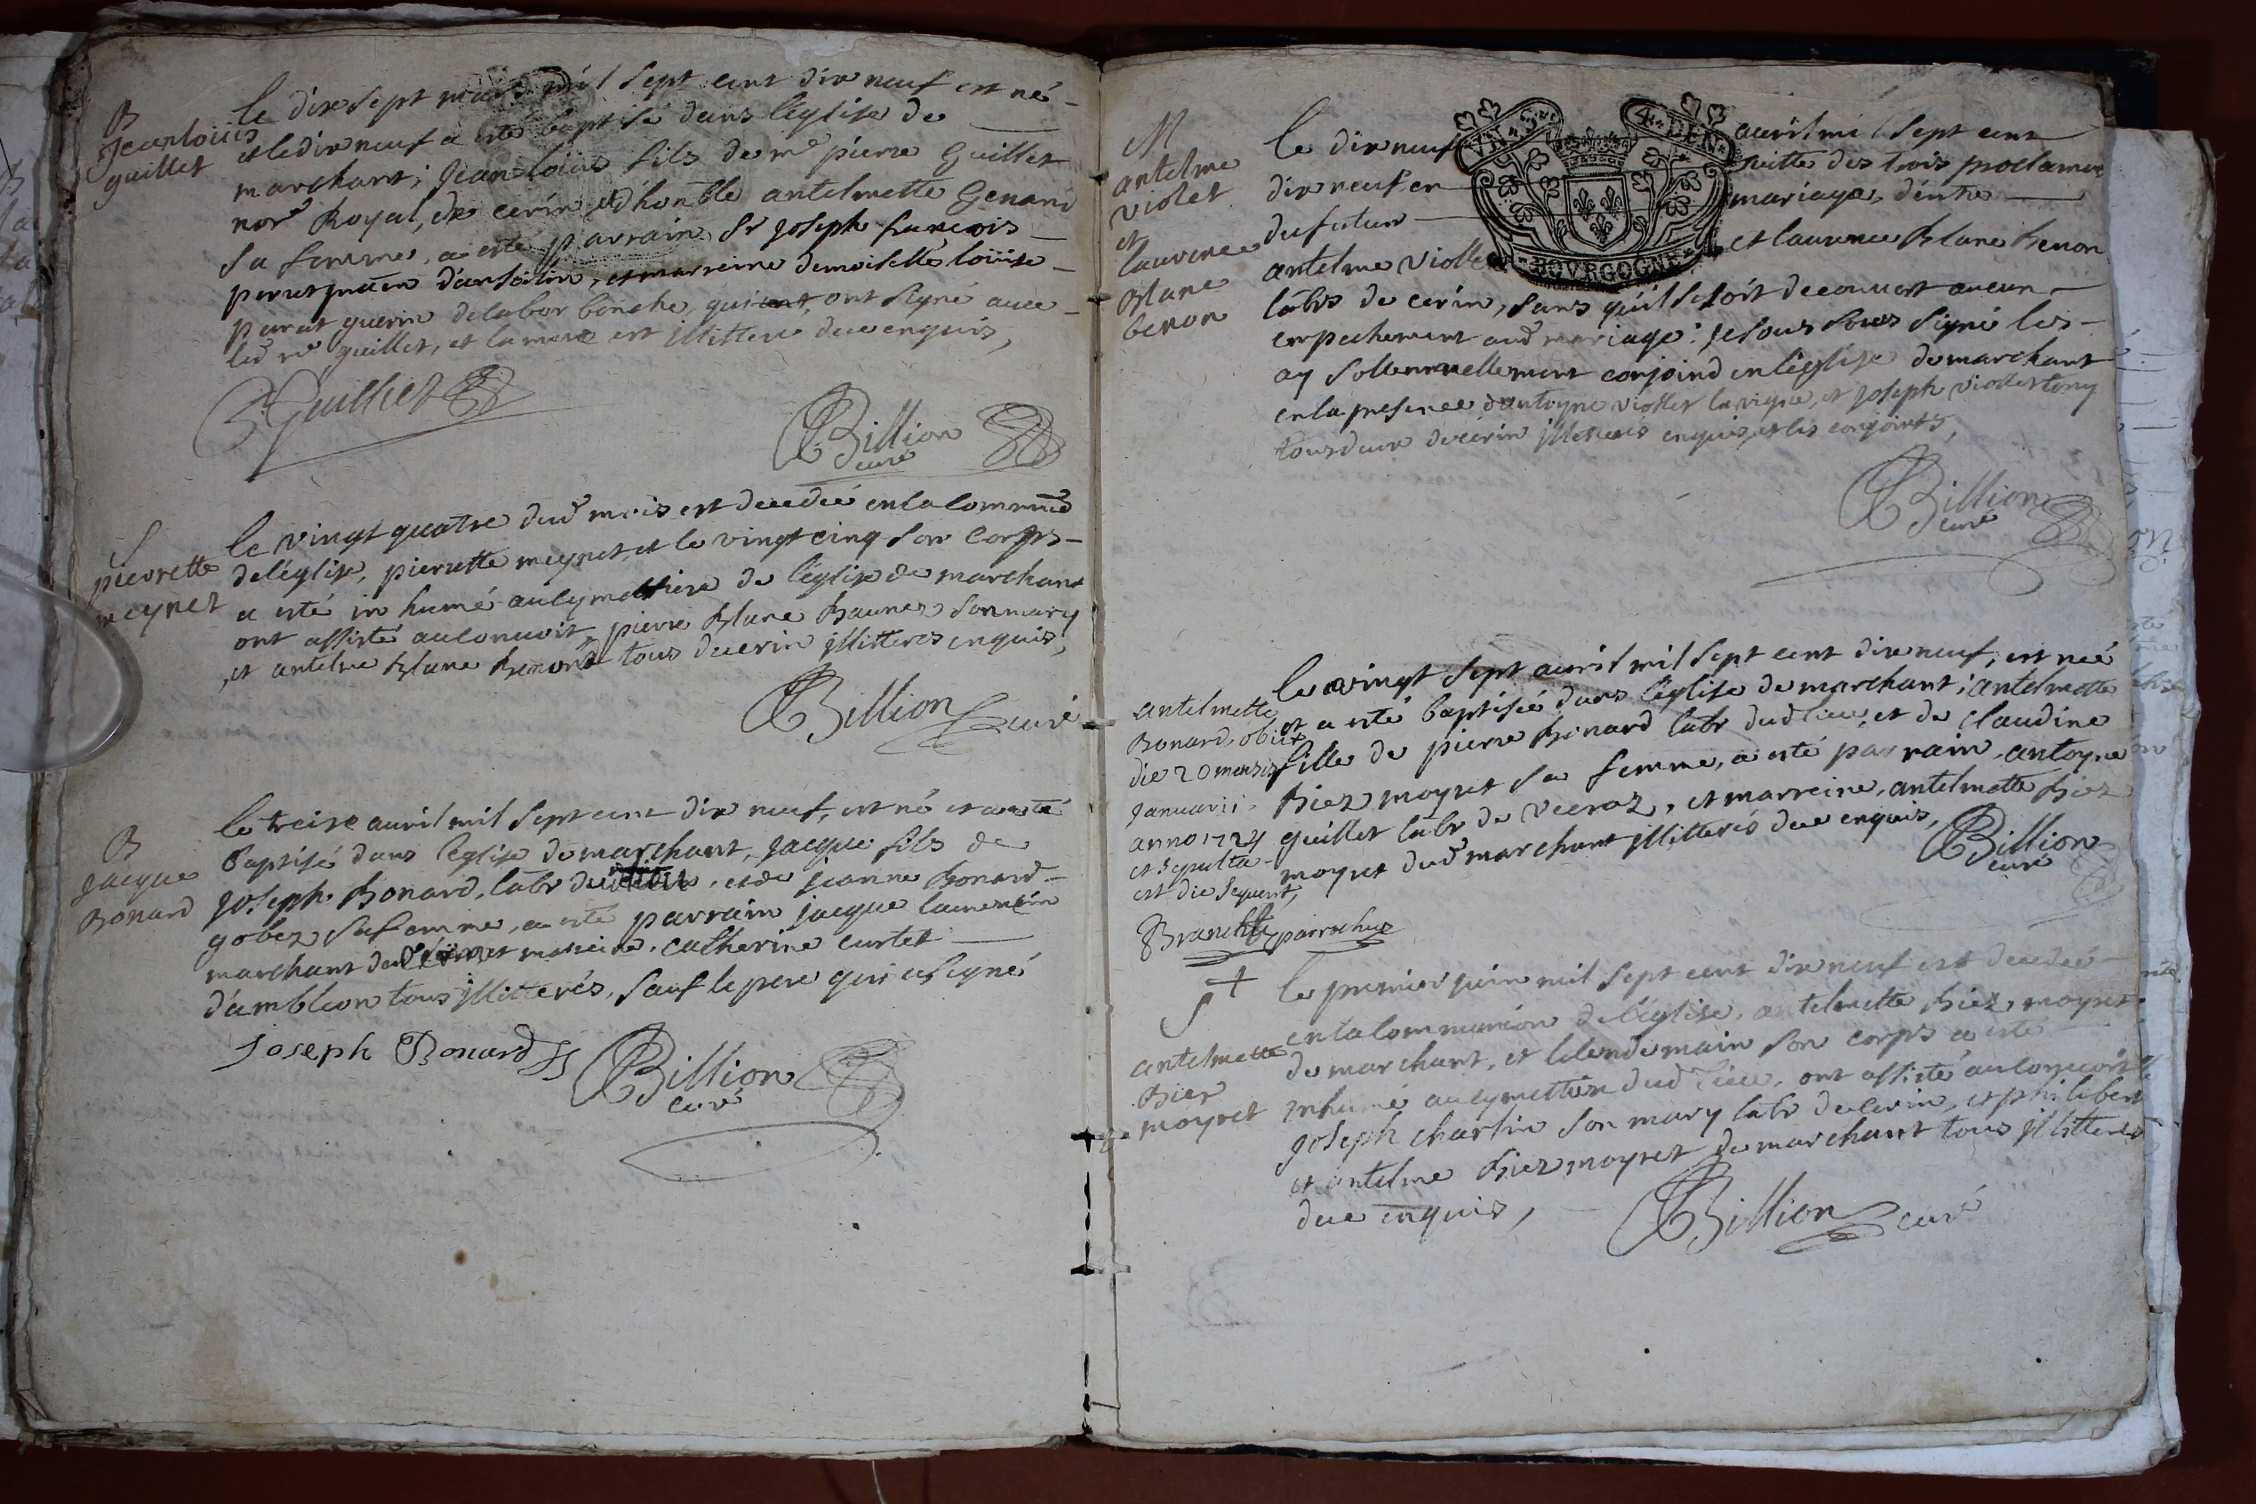 B
Jeanloüis
guillet
le dixsept mars mil sept cent dix neuf est né
et le dix neuf a esté baptisé dans l'église de
marchant; Jean loüis fils de me pierre Guillet
nore Royal, de cerin et d'honble antelmette Genand
sa femme, a esté parrain Sr Joseph francois
et marreine demoiselle loüise
guerin qui ont signé avec
led me guillet, et la mere est illitteré de ce enquis,
Guilliet
Billion
curé
S
pierrette
meynet
le vingt quatre dud mois est decedée en la commun
de l'église, pierrette meynet, et le vingt cinq son corps
a esté in humé au cymettiere de l'église de marchant
ont assisté au convoit pierre blanc son mary
et antelme blanc tous de cerin illitteres enquis,
Billion curé
B
Jacque
Bonard
le treise auril mil sept cent dix neuf, est né et a esté
baptisé dans l'église de marchant, Jacque fils de
Joseph Bonard, labr et de jeanne Bonard
gobez sa femme, a esté parrain jacque
marchant et mareine, catherine curtet
d'ambleon tous illitterés, sauf le pere qui a signé
Joseph Bonard
Billion
curé
M
antelme
violet
et
laurence
blanc
benon
VN S. 4 DEN
BOVRGOGNE
le dix neuf auril mil sept cent
dix neuf en suitte des trois proclama
du futur mariage, d'entre
antelme violle et laurence blanc benon
labrs de cerin, sans qu'il se soit decouvert aucun
empechement aud mariage: je sous signé les
ay sollennellement conjoind en l'église de marchant
en la presence d'antoyne viollet la vigne, et Joseph viollet
tous deux de cerin illiterés enquis, et les conjoints,
Billion
curé
antelmette
Bonard, obiit
die 20 mensis
Januarii
anno 1724
et sepulta
est die sequent,
parrochus
le vingt sept auril mil sept cent dix neuf, est née
et a esté baptisée dans l'église de marchant; antelmette
fille de pierre bonard labr dud lieu, et de claudine
biez moyret sa femme, a esté parrain antoyne
guillet labr de et marreine, antelmette biez
moyret dud marchant illitterés de ce enquis,
Billion
curé
S
antelmette
Biez
moyret
le premier juin mil sept cent dix neuf est decedée
en la communion de l'église, antelmette biez moyret
de marchant, et le lendemain son corps a esté
inhumé au cymettiere dud lieu, ont assisté au convoit
Joseph charlin son mary labr de cerin, et philibert
et antelme biez moyret de marchant tous illitterés
de ce enquis,
Billion curé